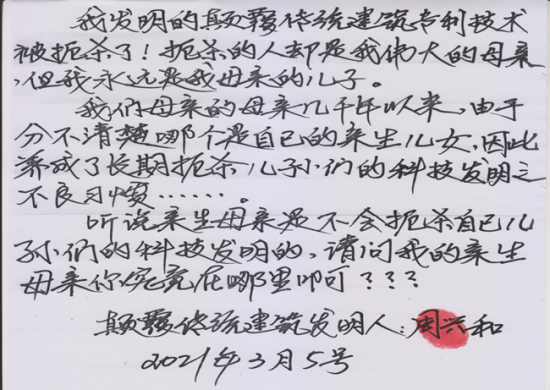 我发明的颠覆传统建筑专利技术
被扼杀了！扼杀的人却是我伟大的母亲
，但我永远是我母亲的儿子。
我们母亲的母亲几千年以来，由于
分不清楚哪个是自己的亲生儿女，因此
养成了长期扼杀儿子们的科技发明之
不良习惯……。
听说亲生母亲是不会扼杀自己儿
子们的科技发明的，请问我的亲生
母亲你究竟在哪里叩可？？？
颠覆传统建筑发明人：周兴和
2021年3月5号